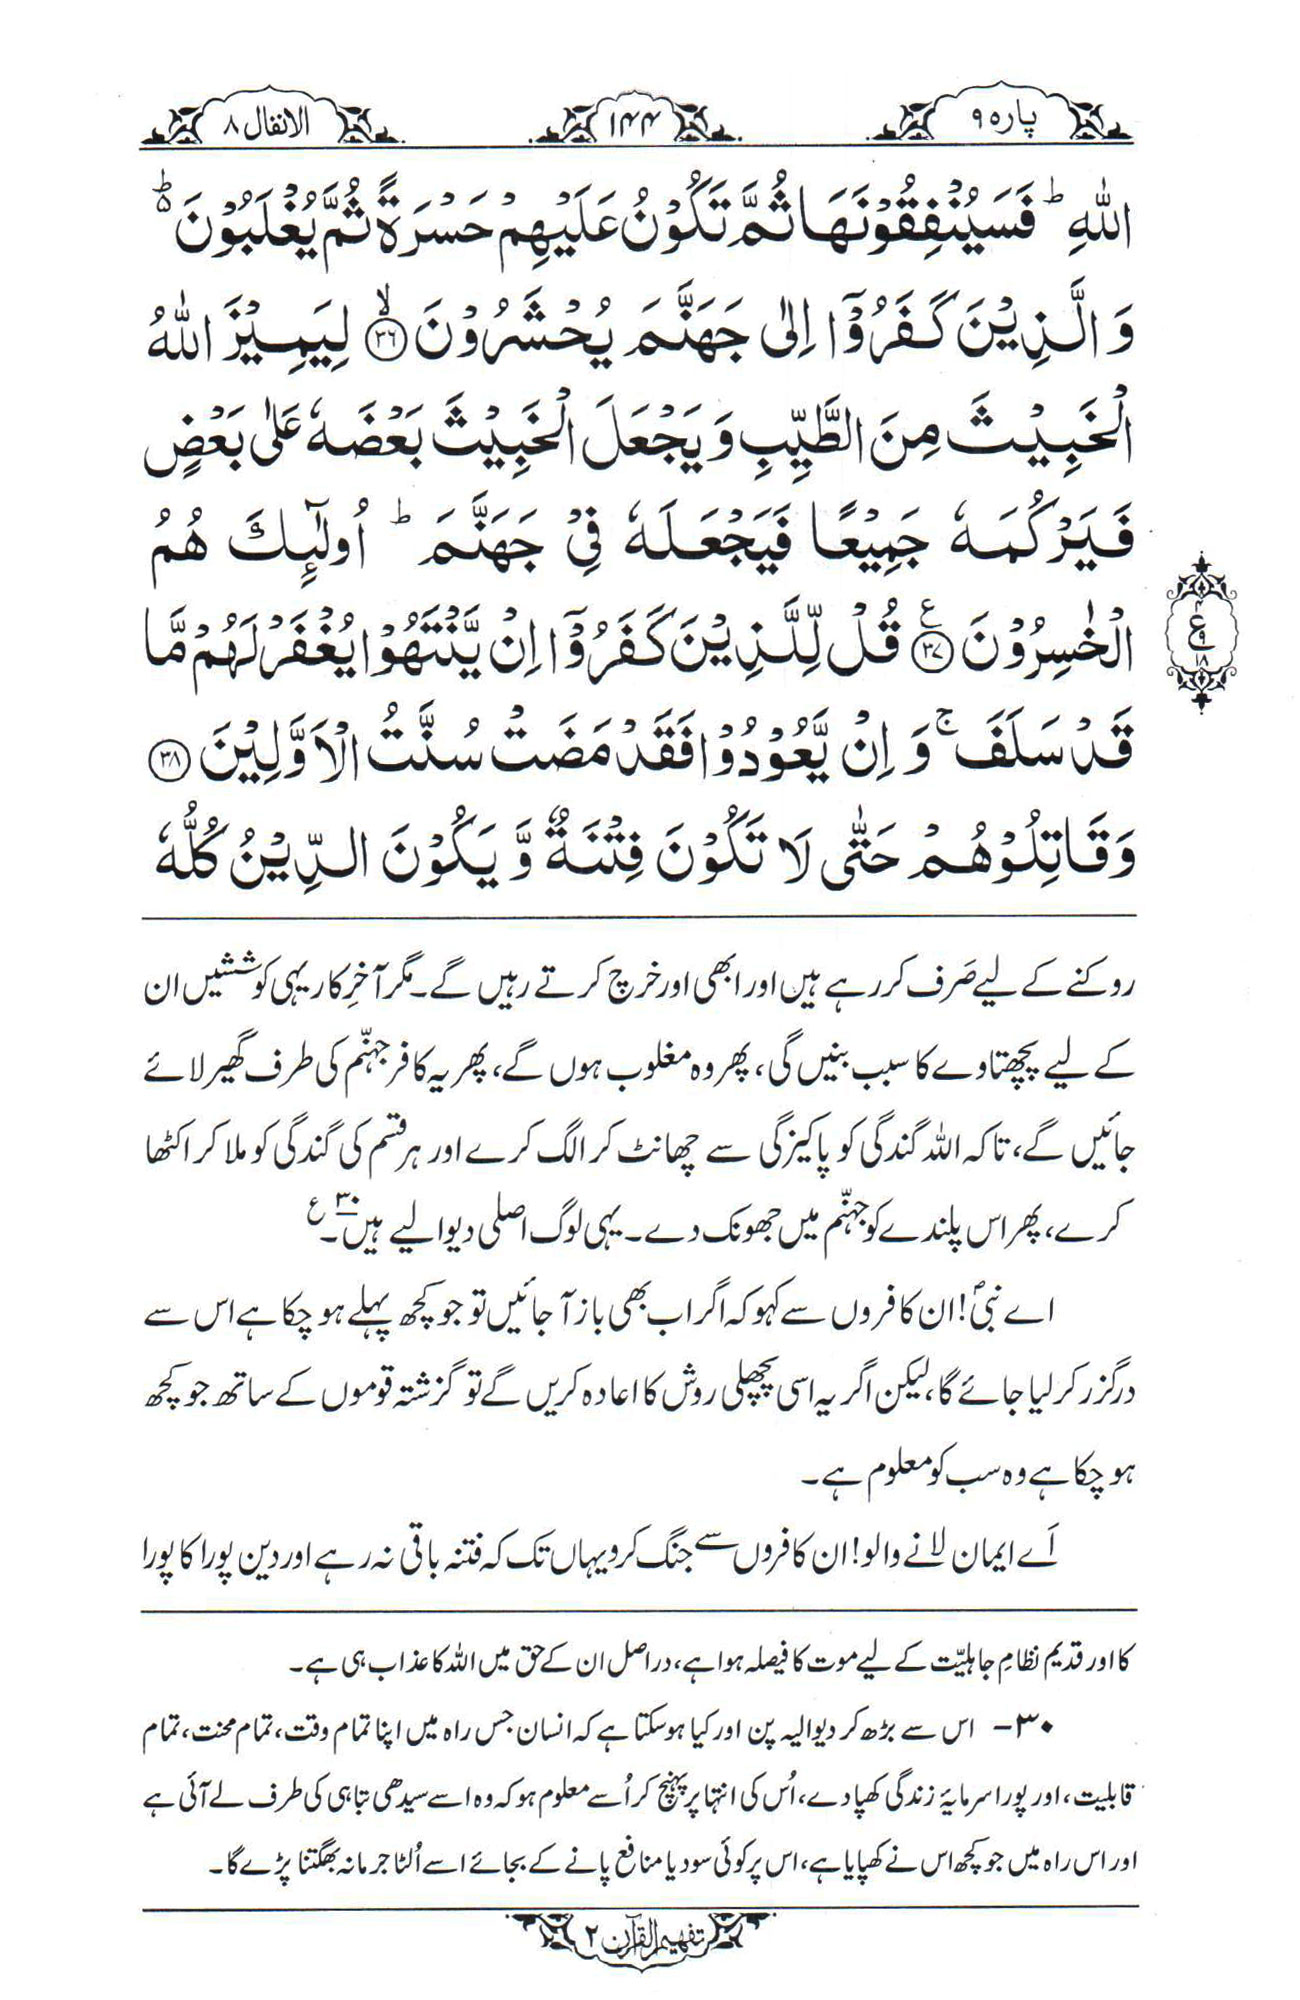 پارہ ۹
۱۴۴
الانفال ۸
اللّٰهِ ؕ فَسَيُنْفِقُوْنَهَا ثُمَّ تَكُوْنُ عَلَيْهِمْ حَسْرَةً ثُمَّ يُغْلَبُوْنَ ۬ؕ
وَ الَّذِيْنَ كَفَرُوْۤا اِلٰى جَهَنَّمَ يُحْشَرُوْنَ ۙ۳۶ لِيَمِيْزَ اللّٰهُ
الْخَبِيْثَ مِنَ الطَّيِّبِ وَ يَجْعَلَ الْخَبِيْثَ بَعْضَهٗ عَلٰى بَعْضٍ
فَيَرْكُمَهٗ جَمِيْعًا فَيَجْعَلَهٗ فِيْ جَهَنَّمَ ؕ اُولٰٓىِٕكَ هُمُ
الْخٰسِرُوْنَ ۳۷ ع قُلْ لِّلَّذِيْنَ كَفَرُوْۤا اِنْ يَّنْتَهُوْا يُغْفَرْ لَهُمْ مَّا
قَدْ سَلَفَ ۚ وَ اِنْ يَّعُوْدُوْا فَقَدْ مَضَتْ سُنَّتُ الْاَوَّلِيْنَ ۳۸
وَ قَاتِلُوْهُمْ حَتّٰى لَا تَكُوْنَ فِتْنَةٌ وَّ يَكُوْنَ الدِّيْنُ كُلُّهٗ
۴
ع
۹
۱۸
روکنے کے لیے صَرف کر رہے ہیں اور ابھی اور خرچ کرتے رہیں گے۔ مگر آخرِ کار یہی کوششیں ان
کے لیے پچھتاوے کا سبب بنیں گی، پھر وہ مغلوب ہوں گے، پھر یہ کافر جہنّم کی طرف گھیر لائے
جائیں گے، تاکہ اللہ گندگی کو پاکیزگی سے چھانٹ کر الگ کرے اور ہر قسم کی گندگی کو ملا کر اکٹھا
کرے، پھر اس پلندے کو جہنّم میں جھونک دے۔ یہی لوگ اصلی دیوالیے ہیں۔۳۰ ع
اے نبیؐ! ان کافروں سے کہو کہ اگر اب بھی باز آ جائیں تو جو کچھ پہلے ہو چکا ہے اس سے
درگزر کر لیا جائے گا، لیکن اگر یہ اسی پچھلی روش کا اعادہ کریں گے تو گزشتہ قوموں کے ساتھ جو کچھ
ہو چکا ہے وہ سب کو معلوم ہے۔
اَے ایمان لانے والو! ان کافروں سے جنگ کرو یہاں تک کہ فتنہ باقی نہ رہے اور دین پورا کا پورا
کا اور قدیم نظامِ جاہلیّت کے لیے موت کا فیصلہ ہوا ہے، دراصل ان کے حق میں اللہ کا عذاب ہی ہے۔
۳۰- اس سے بڑھ کر دیوالیہ پن اور کیا ہو سکتا ہے کہ انسان جس راہ میں اپنا تمام وقت، تمام محنت، تمام
قابلیت، اور پورا سرمایۂ زندگی کھپا دے، اُس کی انتہا پر پہنچ کر اُسے معلوم ہو کہ وہ اسے سیدھی تباہی کی طرف لے آئی ہے
اور اس راہ میں جو کچھ اس نے کھپایا ہے، اس پر کوئی سود یا منافع پانے کے بجائے اسے اُلٹا جرمانہ بھگتنا پڑے گا۔
تفہیم القرآن ۲